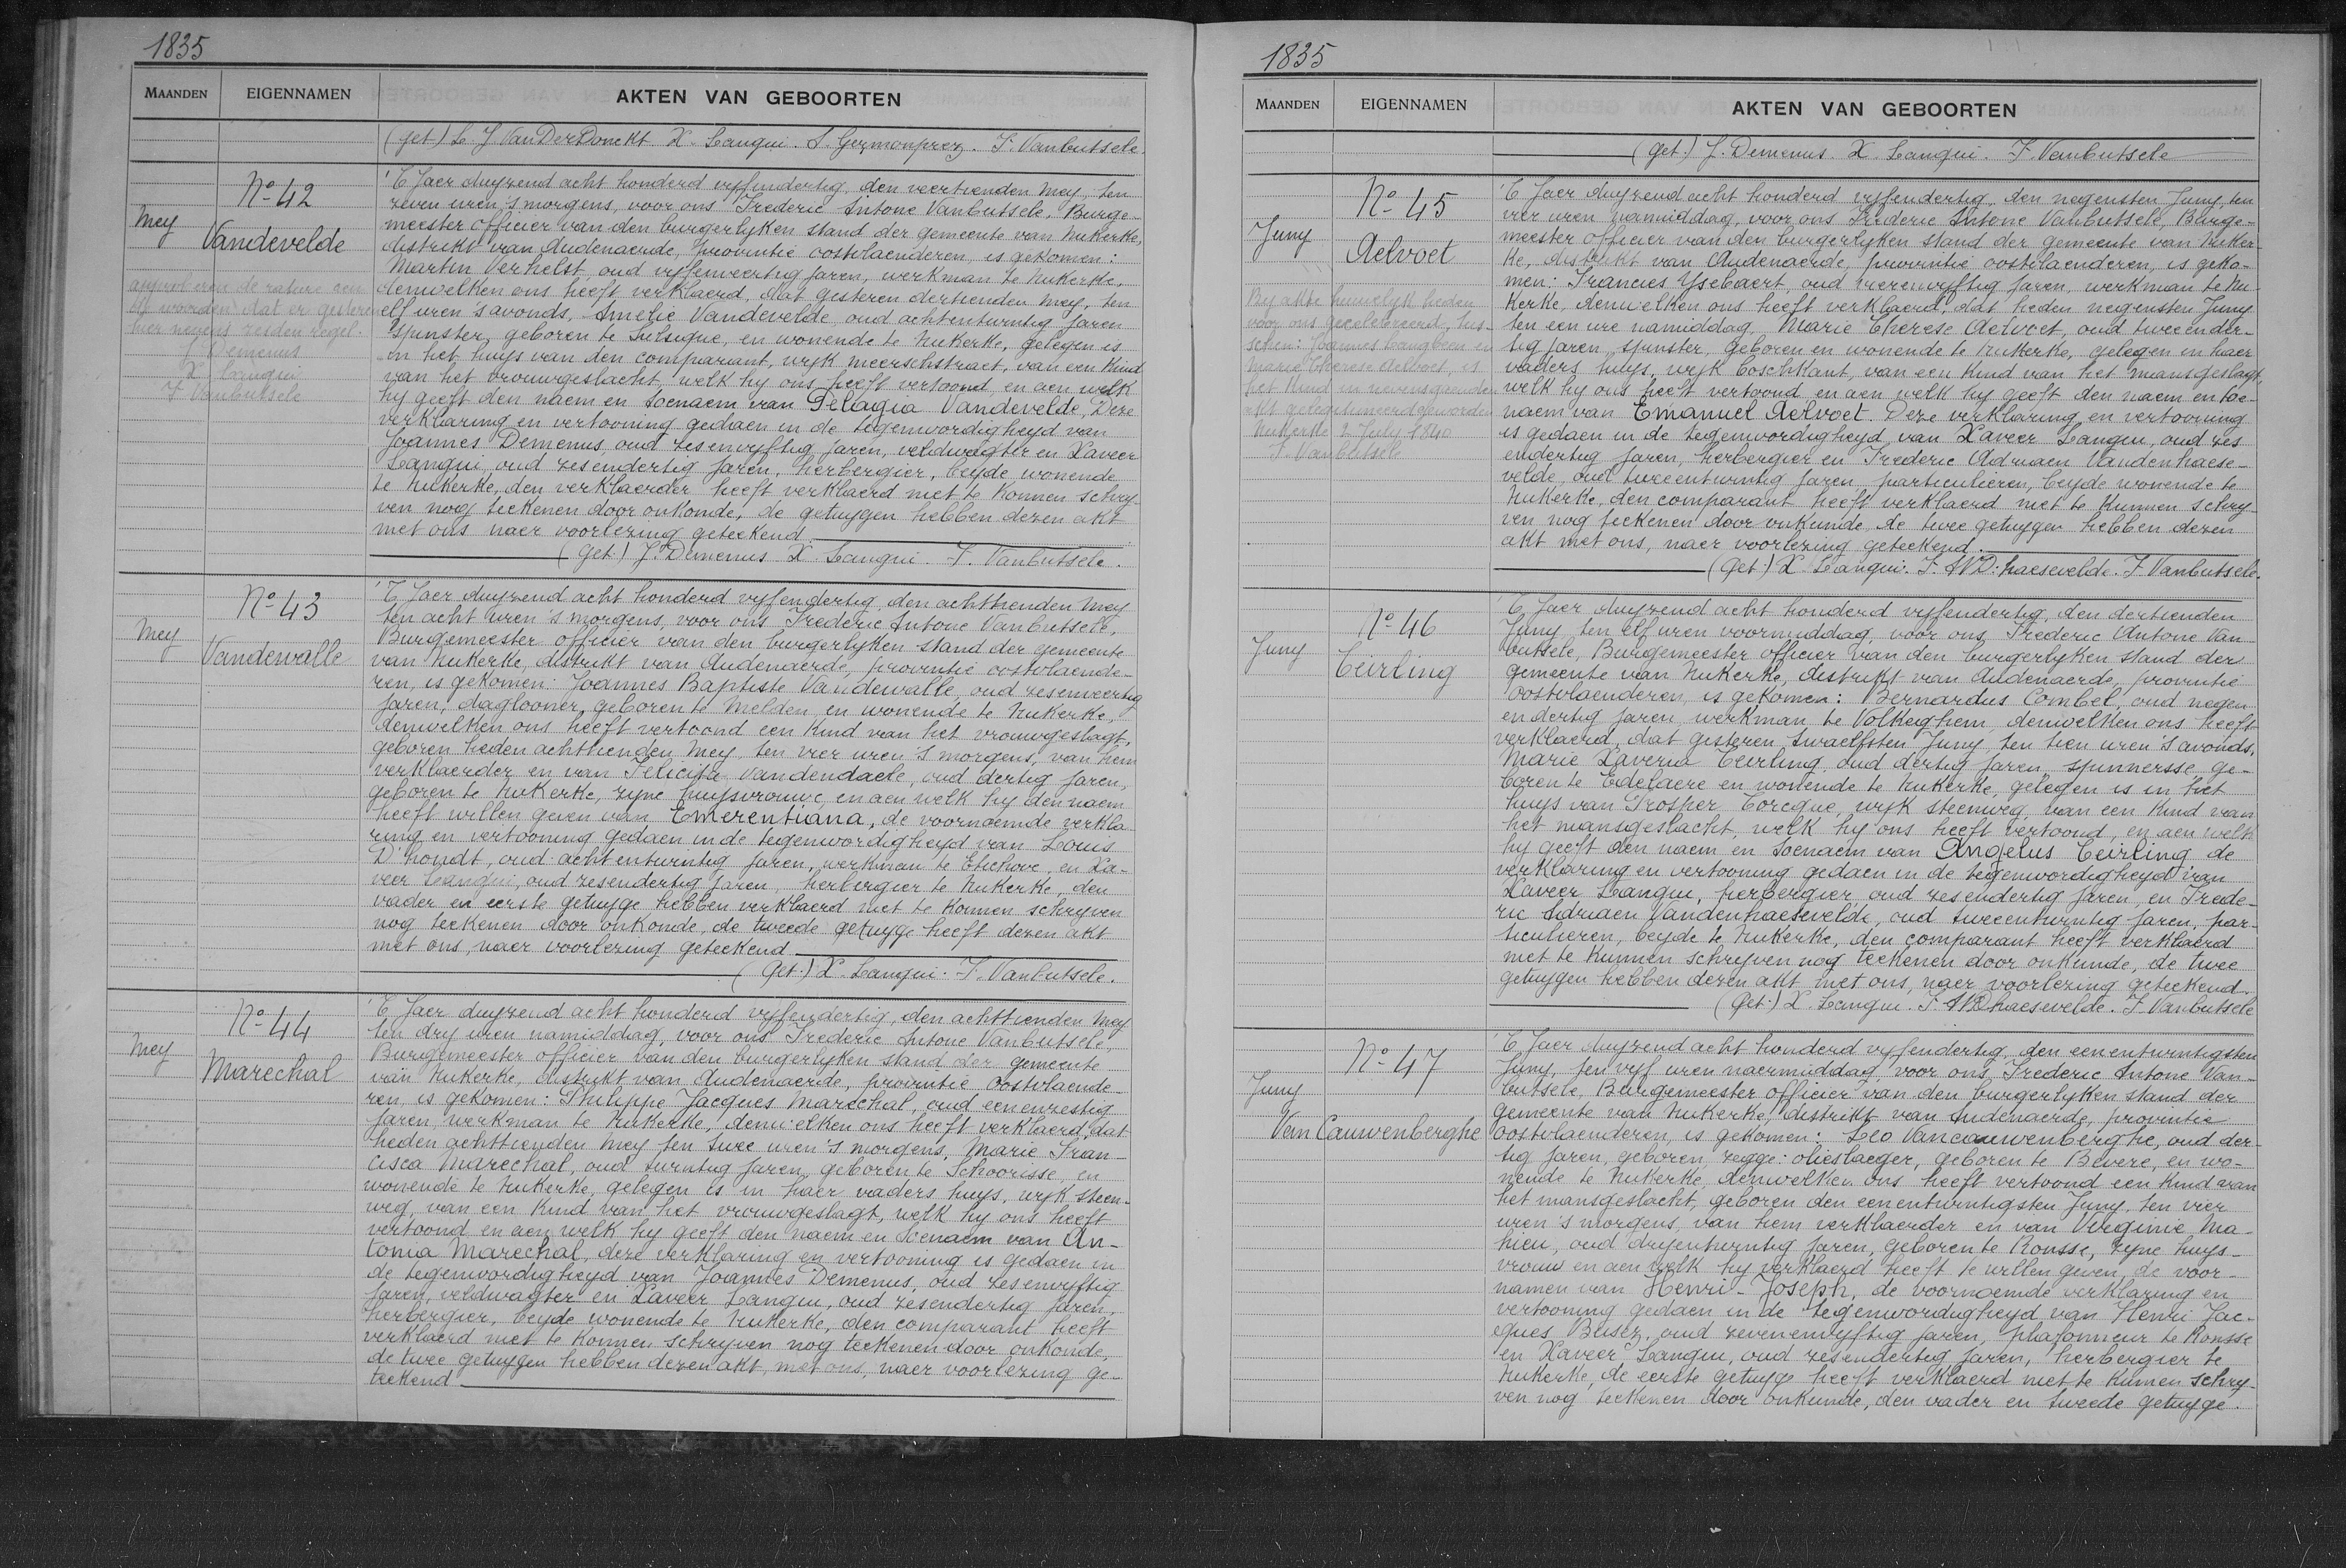 1835
MAANDEN EIGENNAMEN AKTEN VAN GEBOORTEN
(get) L. J VanDerDonckt X. Langui. S. Germonprez. F. Vanbutsele.
No 42
Mey
Vandevelde
approberen de rature van
woorden dat er gisteren
hier nevens zesden regel.
J Demenus
X Langui
F Vanbutsele
'T Jaer duyzend acht honderd vyfendertig, den veertienden Mey, ten
zeven uren 's morgens, voor ons Frederic Antone Vanbutsele, Burge-
meester officier van den burgerlyken stand der gemeente van Nukerke,
distrikt van Audenaerde, provintie oostvlaenderen, is gekomen:
Martin Verhelst, oud vyfenveertig jaren, werkman te Nukerke,
denwelken ons heeft verklaerd, dat gesteren dertienden Mey, ten
elf uren 's avonds, Amelie Vandevelde, oud achtentwintig jaren
spinster, geboren te Sulsique, en wonende te Nukerke, gelegen is
in het huys van den comparant, wyk meerschstraet, van een kind
van het vrouwgeslacht, welk hy ons heeft vertoond, en aen welk
hy geeft den naem en toenaem van Pelagia Vandevelde, Deze
verklaring en vertooning gedaen in de tegenwordigheyd van
Joannes Demenus, oud zesenvyftig jaren, veldwagter en Xaveer
Langui, oud zesendertig jaren, herbergier, beyde wonende
te Nukerke, den verklaerder heeft verklaerd niet te konnen schry-
ven nog teekenen door onkonde, de getuygen hebben dezen akt
met ons naer voorlezing geteekend.
(get) J. Demenus X Langui. F. Vanbutsele.
No 43
Mey
Vandewalle
'T Jaer duyzend acht honderd vyfendertig, den achttienden Mey
ten acht uren 's morgens, voor ons Frederic Antone Vanbutsele,
Burgemeester officier van den burgerlyken stand der gemeente
van Nukerke, distrikt van Audenaerde, provintie oostvlaende-
ren, is gekomen: Joannes Baptiste Vandewalle, oud zesenveertig
jaren, daglooner, geboren te Melden, en wonende te Nukerke,
denwelken ons heeft vertoond een kind van het vrouwgeslagt,
geboren heden achttienden Mey, ten vier uren 's morgens, van hem
verklaerder en van Felicita Vandendaele, oud dertig jaren,
geboren te Nukerke, zyne huysvrouwe, en aen welk hy den naem
heeft willen geven van Emerentiana, de voornoemde verkla-
ring en vertooning gedaen in de tegenwordigheyd van Louis
D'hondt, oud achtentwintig jaren, werkman te Etichove, en Xa-
veer Langui, oud zesendertig jaren, herbergier te Nukerke, den
vader en eerste getuyge hebben verklaerd niet te konnen schryven
nog teekenen door onkonde, de tweede getuyge heeft dezen akt
met ons, naer voorlezing geteekend
(get.) X. Langui. F. Vanbutsele.
No 44
Mey
Marechal
'T Jaer duyzend acht honderd vyfendertig, den achttienden Mey
ten dry uren namiddag, voor ons Frederic Antone Vanbutsele,
Burgemeester officier van den burgerlyken stand der gemeente
van Nukerke, distrikt van Audenaerde, provintie Oostvlaende-
ren, is gekomen: Philippe Jacques Marechal, oud eenenzestig
jaren, werkman te Nukerke, denwelken ons heeft verklaerd, dat
heden achttienden Mey ten twee uren 's morgens, Marie Fran-
cisca Marechal, oud twintig jaren, geboren te Schoorisse, en
wonende te Nukerke, gelegen is in haer vaders huys, wyk steen-
weg, van een kind van het vrouwgeslagt, welk hy ons heeft
vertoond en aen welk hy geeft den naem en toenaem van An-
tonia Marechal, deze verklaring en vertooning is gedaen in
de tegenwordigheyd van Joannes Demenus, oud zesenvyftig
jaren, veldwagter en Xaveer Langui, oud zesendertig jaren,
herbergier, beyde wonende te Nukerke, den comparant heeft
verklaerd niet te konnen schryven nog teekenen door onkonde,
de twee getuygen hebben dezen akt, met ons, naer voorlezing ge-
teekend
1835
MAANDEN EIGENNAMEN AKTEN VAN GEBOORTEN
(get) J. Demenus X Langui. F. Vanbutsele
No 45
Juny
Aelvoet
By akte huwelyk heden
voor ons gecelebreerd, tus-
schen: Joannes Langbeen en
Marie Therese Aelvoet, is
het kind in nevensgaenden
akt gelegitimeerd geworden
Nukerke 2 July 1840
F. Vanbutsele
'T Jaer duyzend acht honderd vyfendertig, den negensten Juny, ten
vier uren namiddag, voor ons Frederic Antone Vanbutsele, Burge-
meester officier van den burgerlyken stand der gemeente van Nuker-
ke, distrikt van Audenaerde, provintie oostvlaenderen, is geko-
men: Francies Ysebaert, oud vierenvyftig jaren, werkman te Nu-
kerke, denwelken ons heeft verklaerd, dat heden negensten Juny
ten een ure namiddag, Marie Therese Aelvoet, oud tweeender-
tig jaren, spinster, geboren en wonende te Nukerke, gelegen in haer
vaders huys, wyk boschkant, van een kind van het mansgeslagt,
welk hy ons heeft vertoond en aen welk hy geeft den naem en toe-
naem van Emanuel Aelvoet. Deze verklaring en vertooning
is gedaen in de tegenwordigheyd van Xaveer Langui, oud zes
endertig jaren, herbergier en Frederic Adriaen Vandenhaese-
velde, oud tweeentwintig jaren, particulieren, beyde wonende te
Nukerke, den comparant heeft verklaerd niet te kunnen schry-
ven nog teekenen door onkunde, de twee getuygen hebben dezen
akt met ons, naer voorlezing geteekend.
(get.) X Langui. F. A VD: haesevelde. F. Vanbutsele.
No 46
Juny
Ceirling
'T Jaer duyzend acht honderd vyfendertig, den dertienden
Juny, ten elf uren voormiddag, voor ons, Frederic Antone Van-
butsele, Burgemeester officier van den burgerlyken stand der
gemeente van Nukerke, distrikt van Audenaerde, provintie
Oostvlaenderen, is gekomen: Bernardus Combel, oud negen
endertig jaren, werkman te Volkeghem, denwelken ons heeft
verklaerd, dat gisteren twaelfsten Juny, ten tien uren 's avonds,
Marie Xaveria Ceirling, oud dertig jaren, spinnersse, ge-
boren te Edelaere en wonende te Nukerke, gelegen is in het
huys van Prosper Corcque, wyk steenweg, van een kind van
het mansgeslacht, welk hy ons heeft vertoond, en aen welk
hy geeft den naem en toenaem van Angelus Ceirling, de
verklaring en vertooning gedaen in de tegenwordigheyd van
Xaveer Langui, herbergier, oud zesendertig jaren, en Frede-
ric Adriaen Vandenhaesevelde, oud tweeentwintig jaren, par-
ticulieren, beyde te Nukerke, den comparant heeft verklaerd
niet te kunnen schryven nog teekenen door onkunde, de twee
getuygen hebben dezen akt met ons, naer voorlezing geteekend.
(get.) X Langui. F. A VD haesevelde. F. Vanbutsele
No 47
Juny
Van Cauwenberghe
'T Jaer duyzend acht honderd vyfendertig, den eenentwintigsten
Juny, ten vyf uren naermiddag, voor ons, Frederic Antone Van-
butsele, Burgemeester officier van den burgerlyken stand der
gemeente van Nukerke, distrikt van Audenaerde, provintie
oostvlaenderen, is gekomen: Leo Vancauwenberghe, oud der-
tig jaren, geboren, zegge: olieslaeger, geboren te Bevere, en wo-
nende te Nukerke, denwelken ons heeft vertoond een kind van
het mansgeslacht, geboren den eenentwintigsten Juny, ten vier
uren 's morgens, van hem verklaerder en van Virginie Ma-
hieu, oud dryentwintig jaren, geboren te Ronsse, zyne huys-
vrouw en aen welk hy verklaerd heeft te willen geven, de voor-
namen van Henri-Joseph, de voornoemde verklaring en
vertooning gedaen in de tegenwordigheyd van Henri Jac-
ques Busez, oud zevenenvyftig jaren, plafonneur te Ronsse
en Xaveer Langui, oud zesendertig jaren, herbergier te
Nukerke, de eerste getuyge heeft verklaerd niet te kunnen schry-
ven nog teekenen door onkunde, den vader en tweede getuyge.